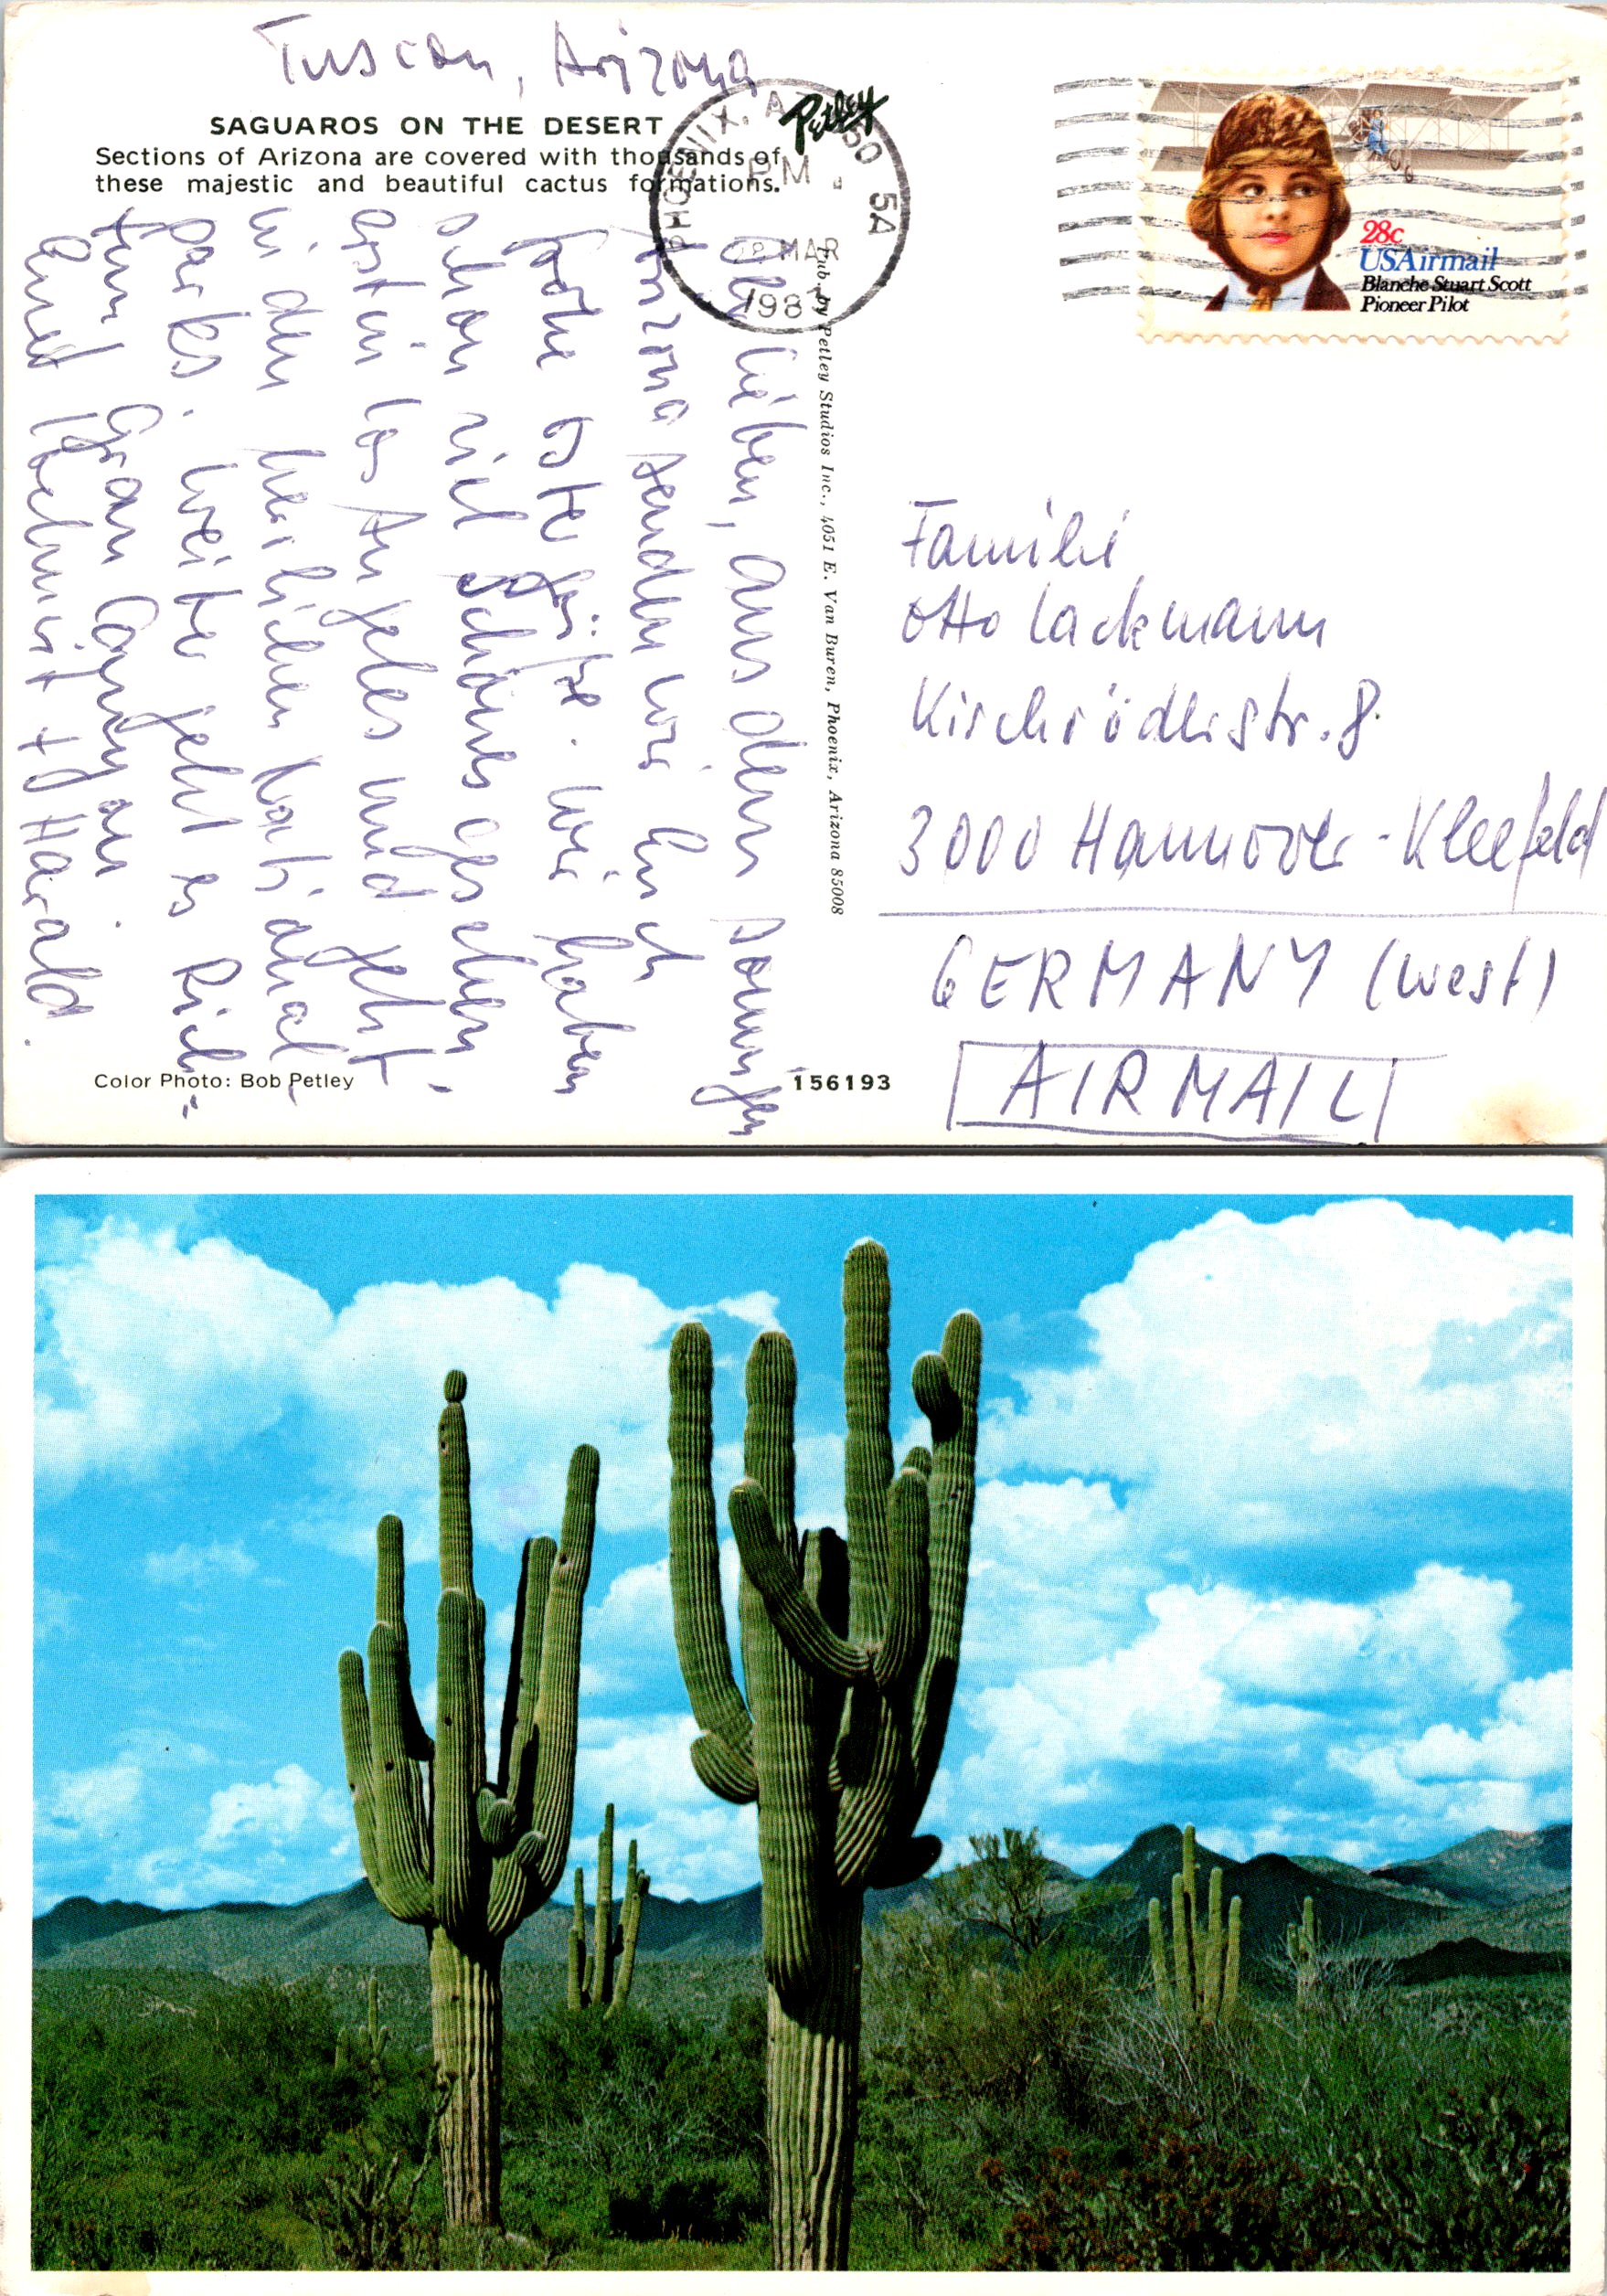 Tuscon, Arizona
SAGUAROS ON THE DESERT
Sections of Arizona are covered with thousands of
these majestic and beautiful cactus formations.
Petley
PHOENIX, AZ 850 5A
PM
MAR
198
28c
USAirmail
Blanche Stuart Scott
Pioneer Pilot
Ihr Lieben, aus dem sonnigen
Arizona senden wir Euch
frohe Ostergrüße. Wir haben
schon viel Schönes gesehen.
erst in Los Angeles und jetzt
in den herrlichen National
parks. Weiter geht es Rich-
tung Gran Canyon
Euch Helmut + Harald.
Pub. by Petley Studios Inc., 4051 E. Van Buren, Phoenix, Arizona 85008
Familie
Otto Lackmann
Kirchröderstr. 8
3000 Hannover-Kleefeld
GERMANY (west)
AIRMAIL
Color Photo: Bob Petley
156193